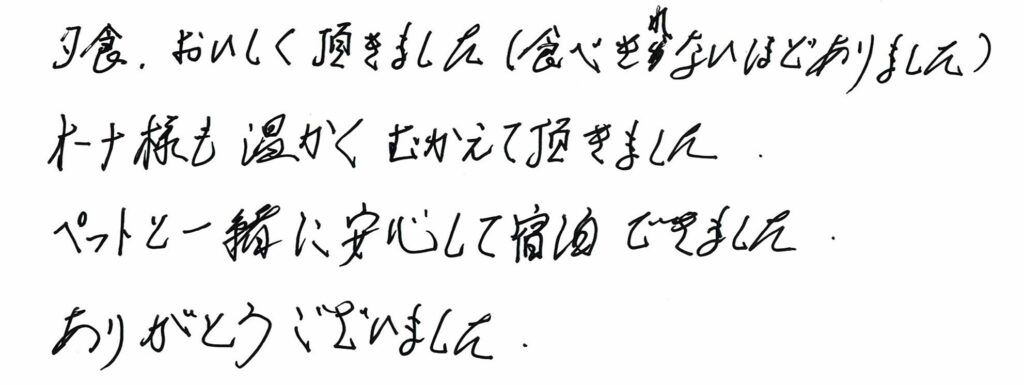 夕食、おいしく頂きました(食べきれないほどありました)
オーナ様も温かくむかえて頂きました.
ペットと一緒に安心して宿泊できました.
ありがとうございました.